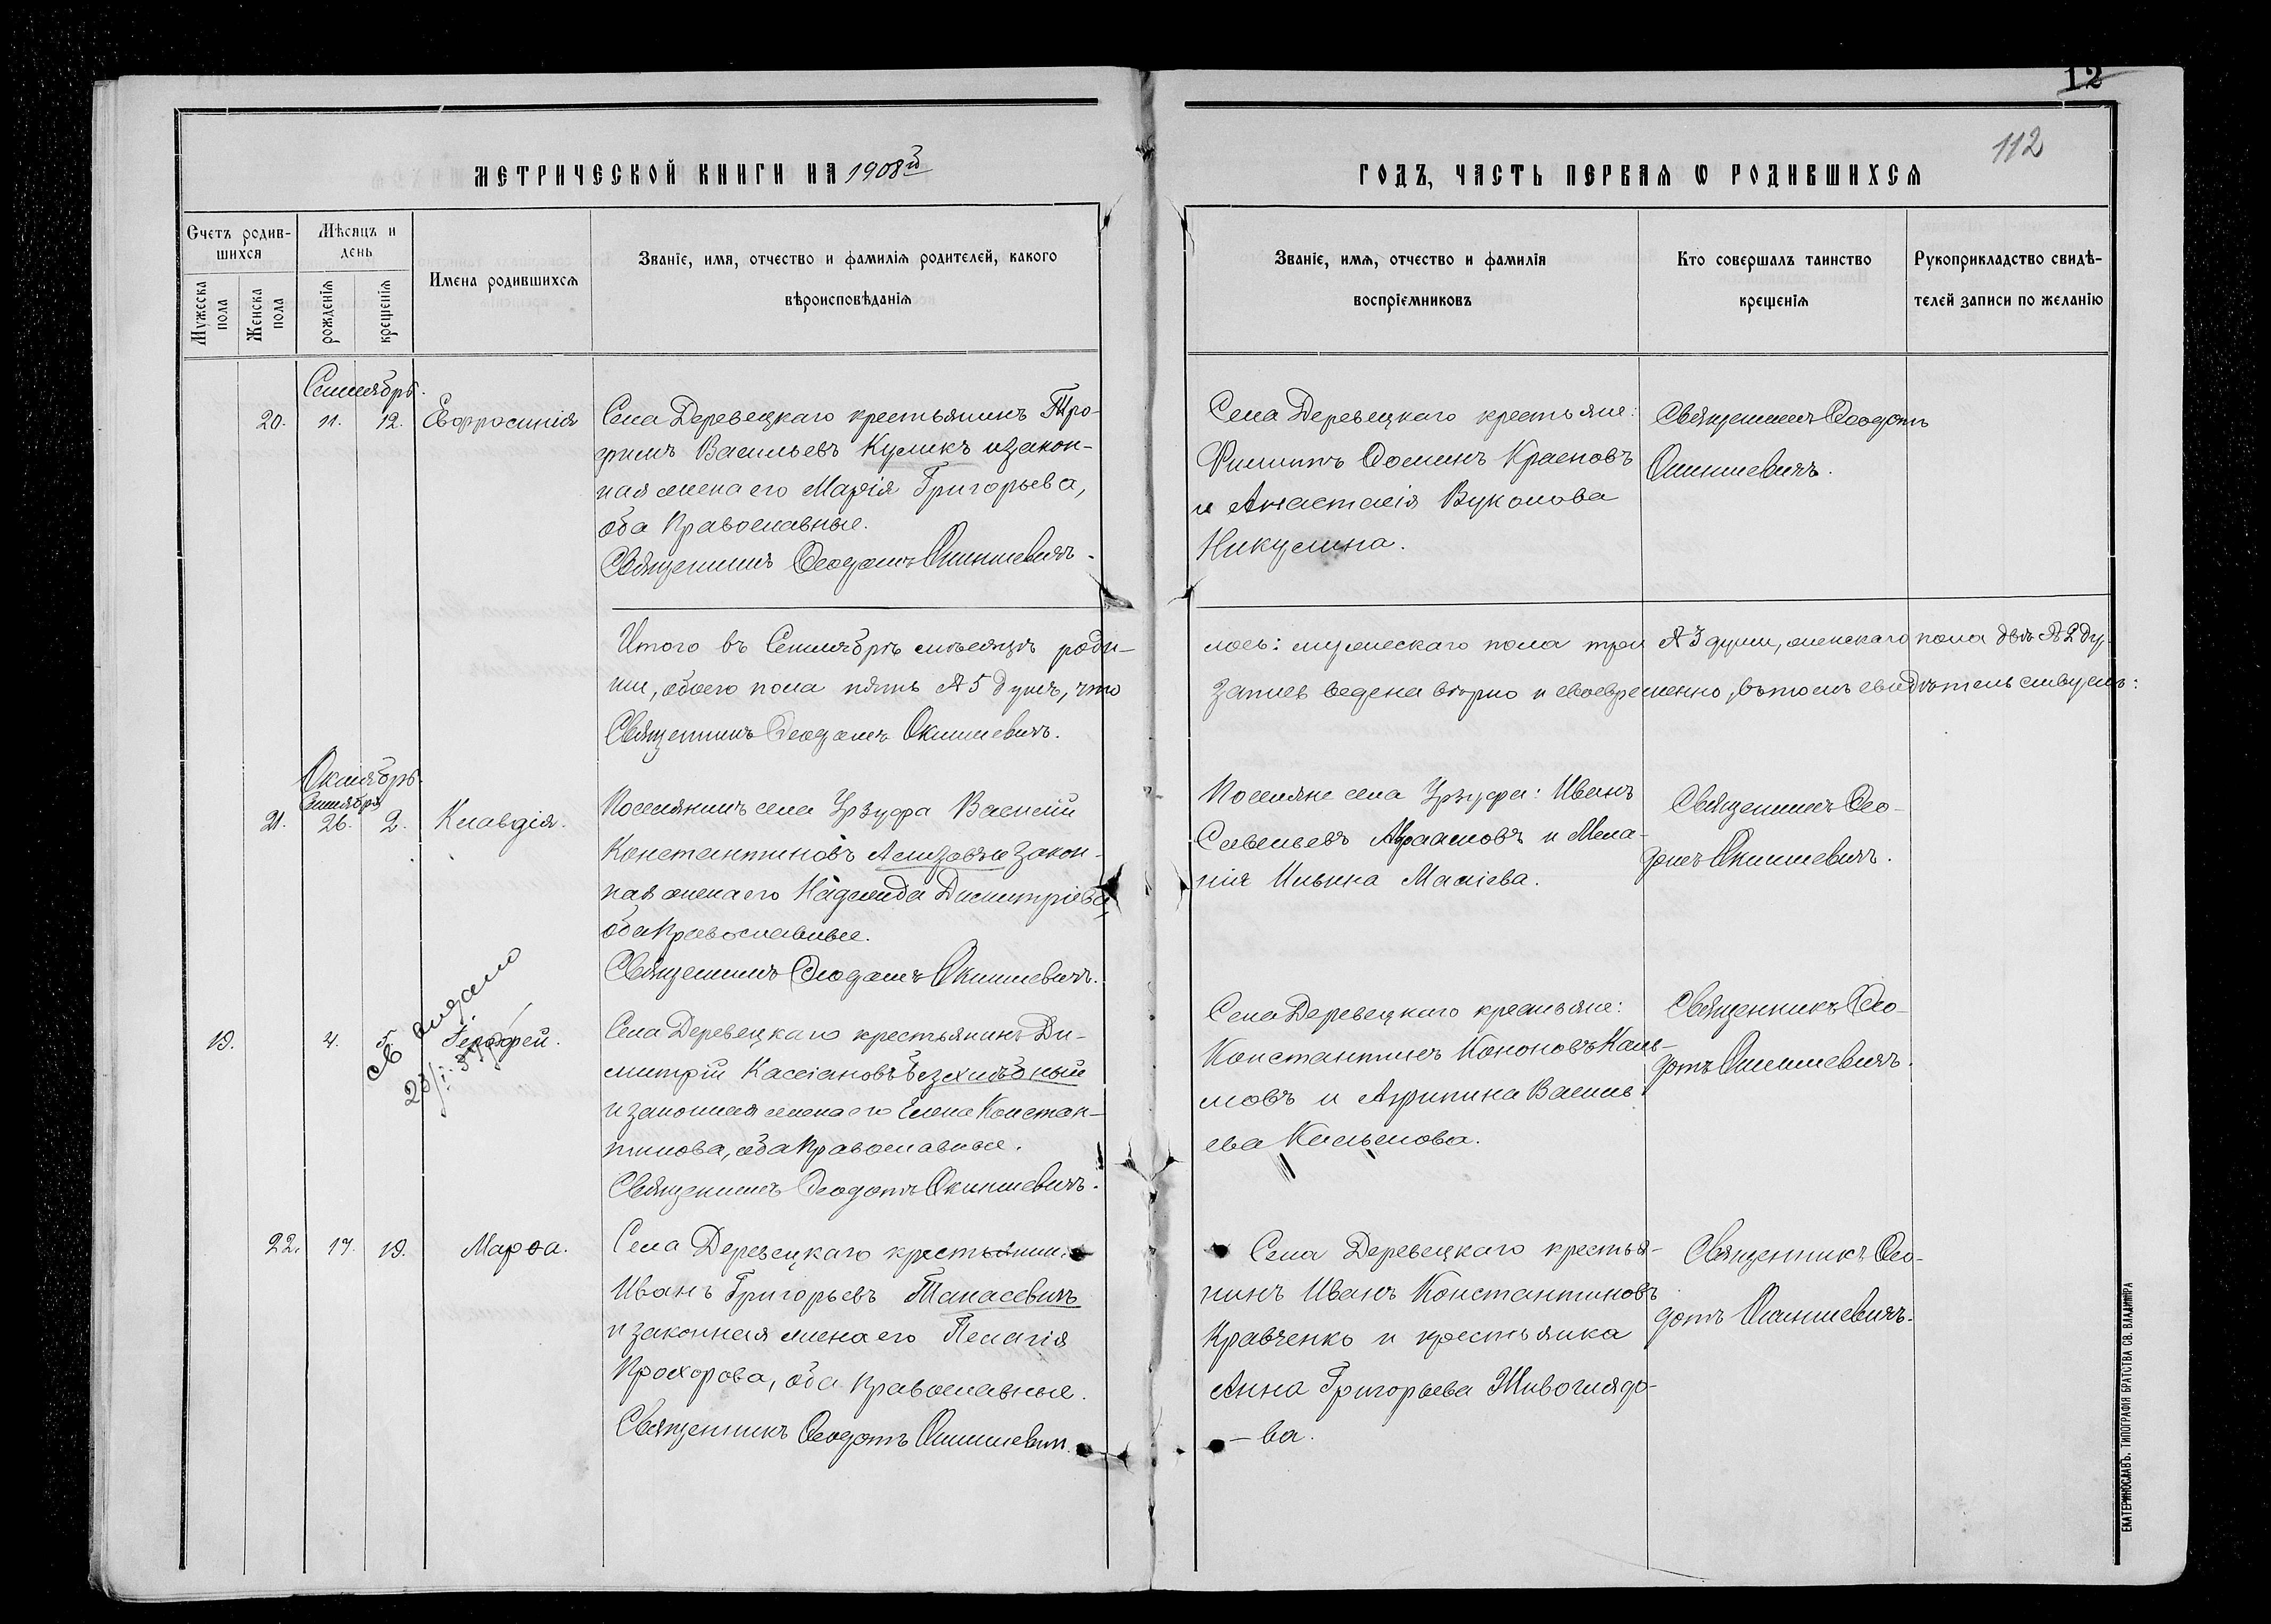 12
112
МЕТРИЧЕСКОЙ КНИГИ НА 1908й
ГОДЪ, ЧАСТЬ ПЕРВАЯ Ѡ РОДИВШИХСЯ
Счетъ родив-
шихся
Мужеска пола
Женска пола
Мѣсяцъ и
день
рожденія
крещенія
Имена родившихся
Званіе, имя, отчество и фамилія родителей, какого
вѣроисповѣданія
Званіе, имя, отчество и фамилія
воспріемниковъ
Кто совершалъ таинство
крещенія
Рукоприкладство свидѣ-
телей записи по желанію
Сентябрь.
20. 11. 12. Евфросинія
Села Деревецкаго крестьянинъ Тро-
фимъ Васильевъ Куликъ и закон-
ная жена его Марія Григорьева,
оба Православные.
Священникъ Ѳеодотъ Окиншевичъ.
Села Деревецкаго крестьяне:
Филиппъ Ѳоминъ Красновъ
и Анастасія Вуколова
Никулина.
Священникъ Ѳеодотъ
Окиншевичъ.
Итого въ Сентябрѣ мѣсяцѣ роди-
лось: мужескаго пола три № 3 души, женскаго пола двѣ № 2 ду-
ши, обоего пола пять № 5 душъ, что
запись ведена вѣрно и своевременно, въ томъ свидѣтельствуемъ:
Священникъ Ѳеодотъ Окиншевичъ.
Октябрь.
Сентября
21. 26. 2. Клавдія.
Поселянинъ села Урзуфа Василій
Константиновъ и закон-
ная жена его Надежда Димитріева,
оба Православные.
Священникъ Ѳеодотъ Окиншевичъ.
Поселяне села Урзуфа: Иванъ
Савельевъ Авраамовъ и Мела-
нія Ильина
Священникъ Ѳео-
дотъ Окиншевичъ.
св выдано
19. 4. 5. Іероѳей.
Села Деревецкаго крестьянинъ Ди-
митрій Кассіановъ Безхлѣбный
и законная жена его Елена Констан-
тинова, оба Православные.
Священникъ Ѳеодотъ Окиншевичъ.
Села Деревецкаго крестьяне:
Константинъ Кононовъ Каль-
мовъ и Агрипина Василь
ева Кальмова.
Священникъ Ѳео-
дотъ Окиншевичъ.
22. 17. 19. Марѳа.
Села Деревецкаго крестьянин.
Иванъ Григорьевъ Танасевичъ
и законная жена его Пелагія
Прохорова, оба православные.
Священникъ Ѳеодотъ Окиншевич.
Села Деревецкаго крестья-
нинъ Иванъ Константиновъ
Кравченко и крестьянка
Анна Григорьева Живоглядо-
-ва.
Священникъ Ѳео-
дотъ Окиншевичъ.
ЕКАТЕРИНОСЛАВЪ. ТИПОГРАФІЯ БРАТСТВА СВ. ВЛАДИМІРА